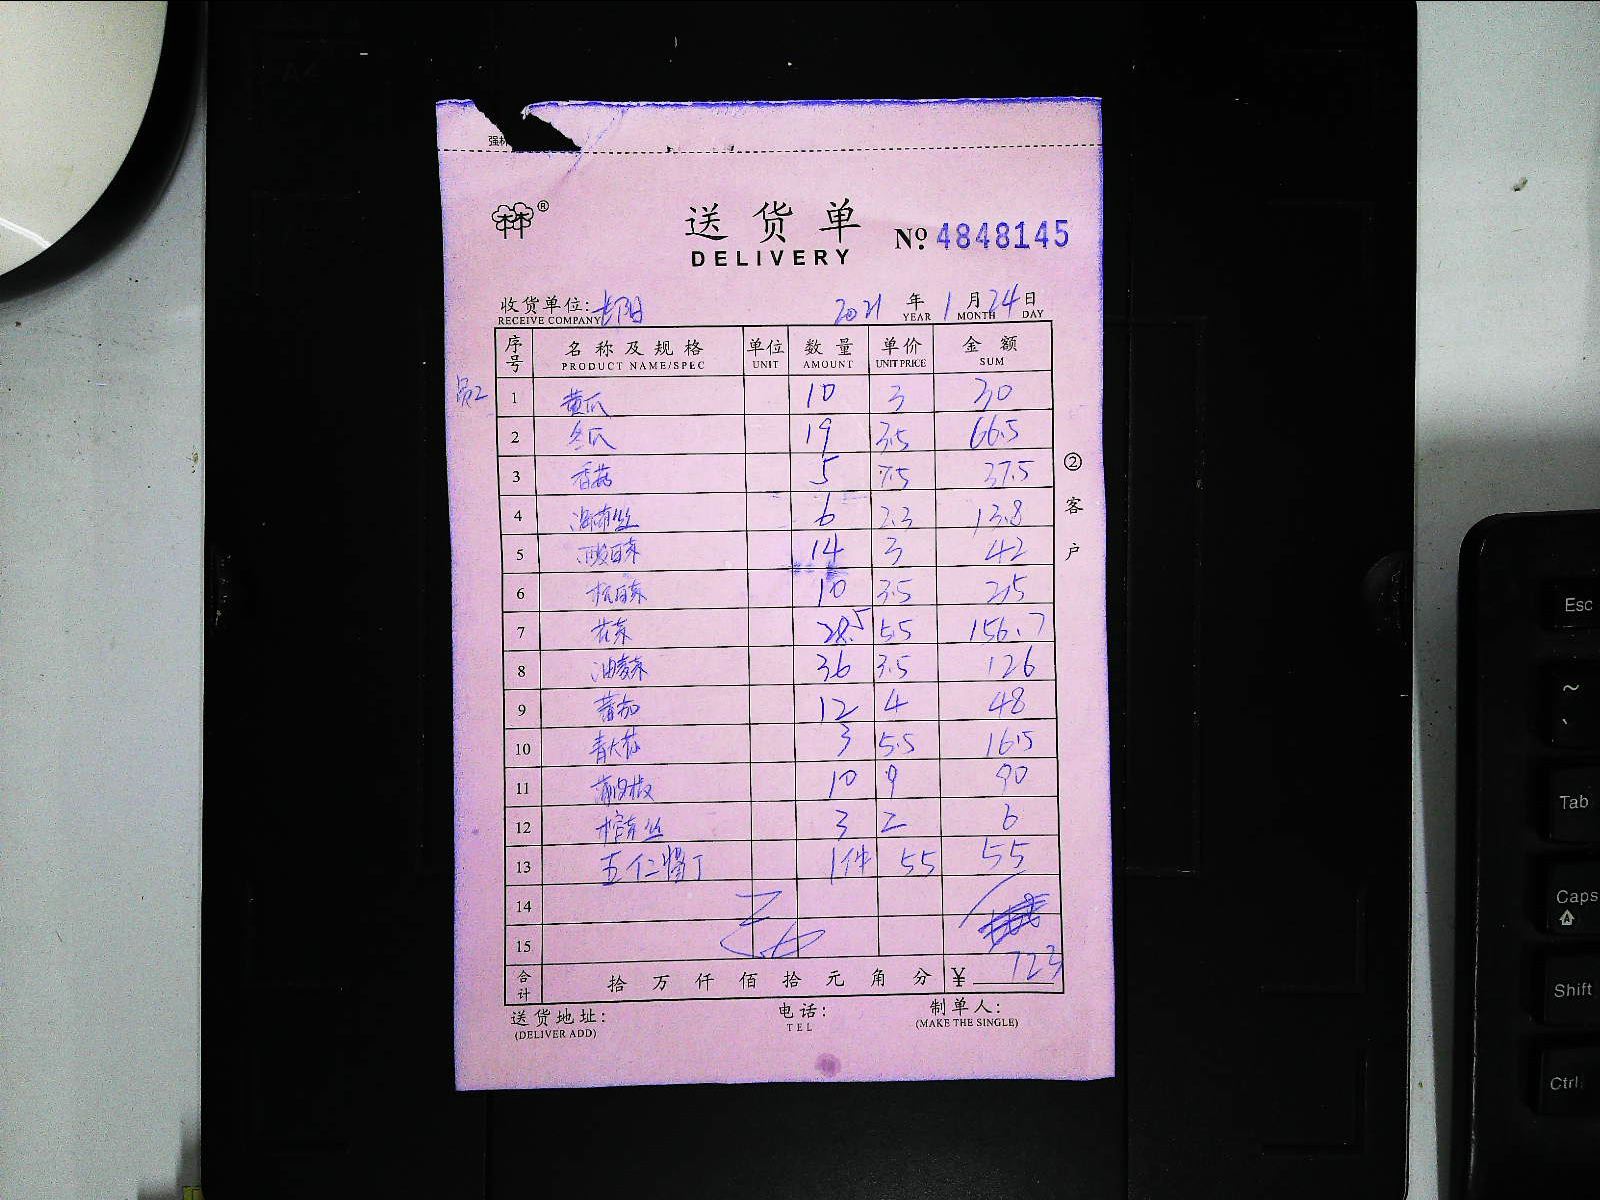 强林
®
送货单
DELIVERY
No. 4848145
收货单位: 长阳 2021 年 1 月 24 日
RECEIVE COMPANY YEAR MONTH DAY
序号 名称及规格 单位 数量 单价 金额
PRODUCT NAME/SPEC UNIT AMOUNT UNIT PRICE SUM
1 黄瓜 10 3 30
2 丝瓜 19 3.5 66.5
3 香菇 5 7.5 37.5
4 海带丝 6 2.3 13.8
5 酸白菜 14 3 42
6 杭白菜 10 3.5 35
7 花菜 28.5 5.5 156.7
8 油麦菜 36 3.5 126
9 蕃茄 12 4 48
10 青大椒 3 5.5 16.5
11 10 9 90
12 榨菜丝 3 2 6
13 五仁酱丁 1件 55 55
14
15
合计 拾 万 仟 佰 拾 元 角 分 ¥ 723
送货地址: 电话: 制单人:
(DELIVER ADD) TEL (MAKE THE SINGLE)
② 客户
Esc
~
`
Tab
Caps
Shift
Ctrl